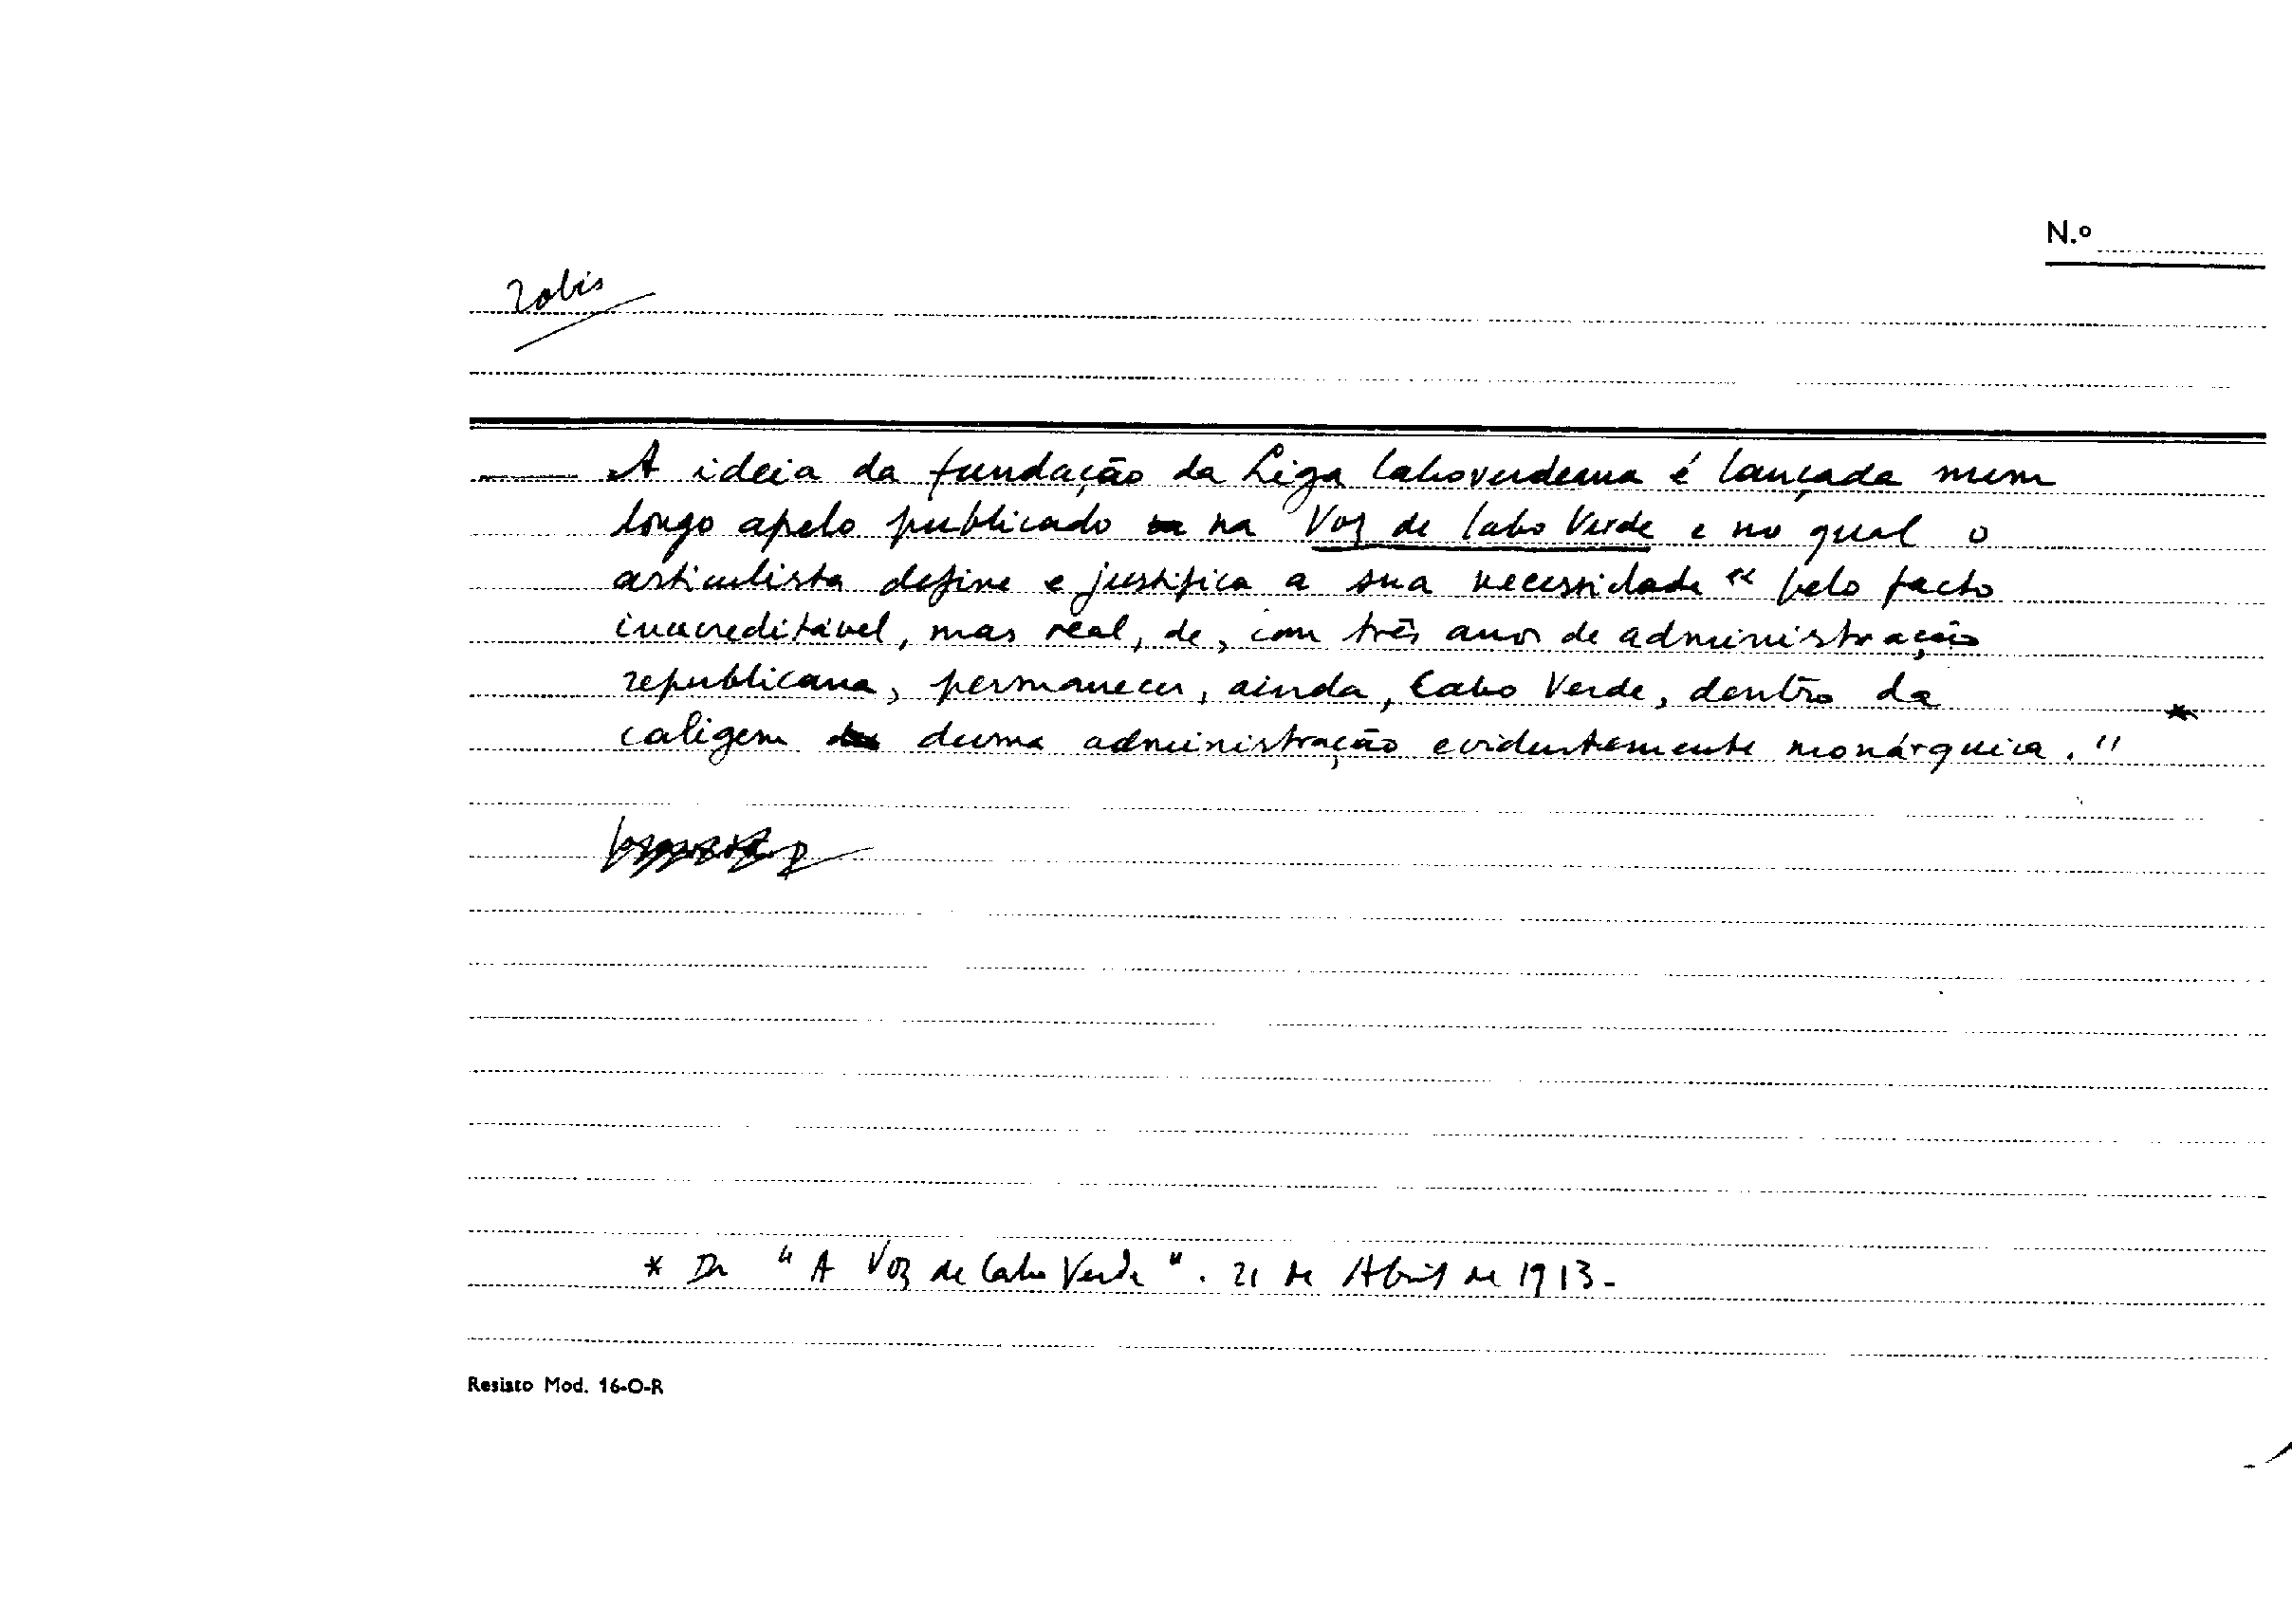 N.º
20bis
A ideia da fundação da Liga Caboverdeana é lançada num
longo apelo publicado na Voz de Cabo Verde e no qual o
articulista define e justifica a sua necessidade "pelo facto
inacreditável, mas real, de, com três anos de administração
republicana, permanecer, ainda, Cabo Verde, dentro da
caligem duma administração evidentemente monárquica." *
* Da "A Voz de Cabo Verde". 21 de Abril de 1913-
Resisto Mod. 16-O-R